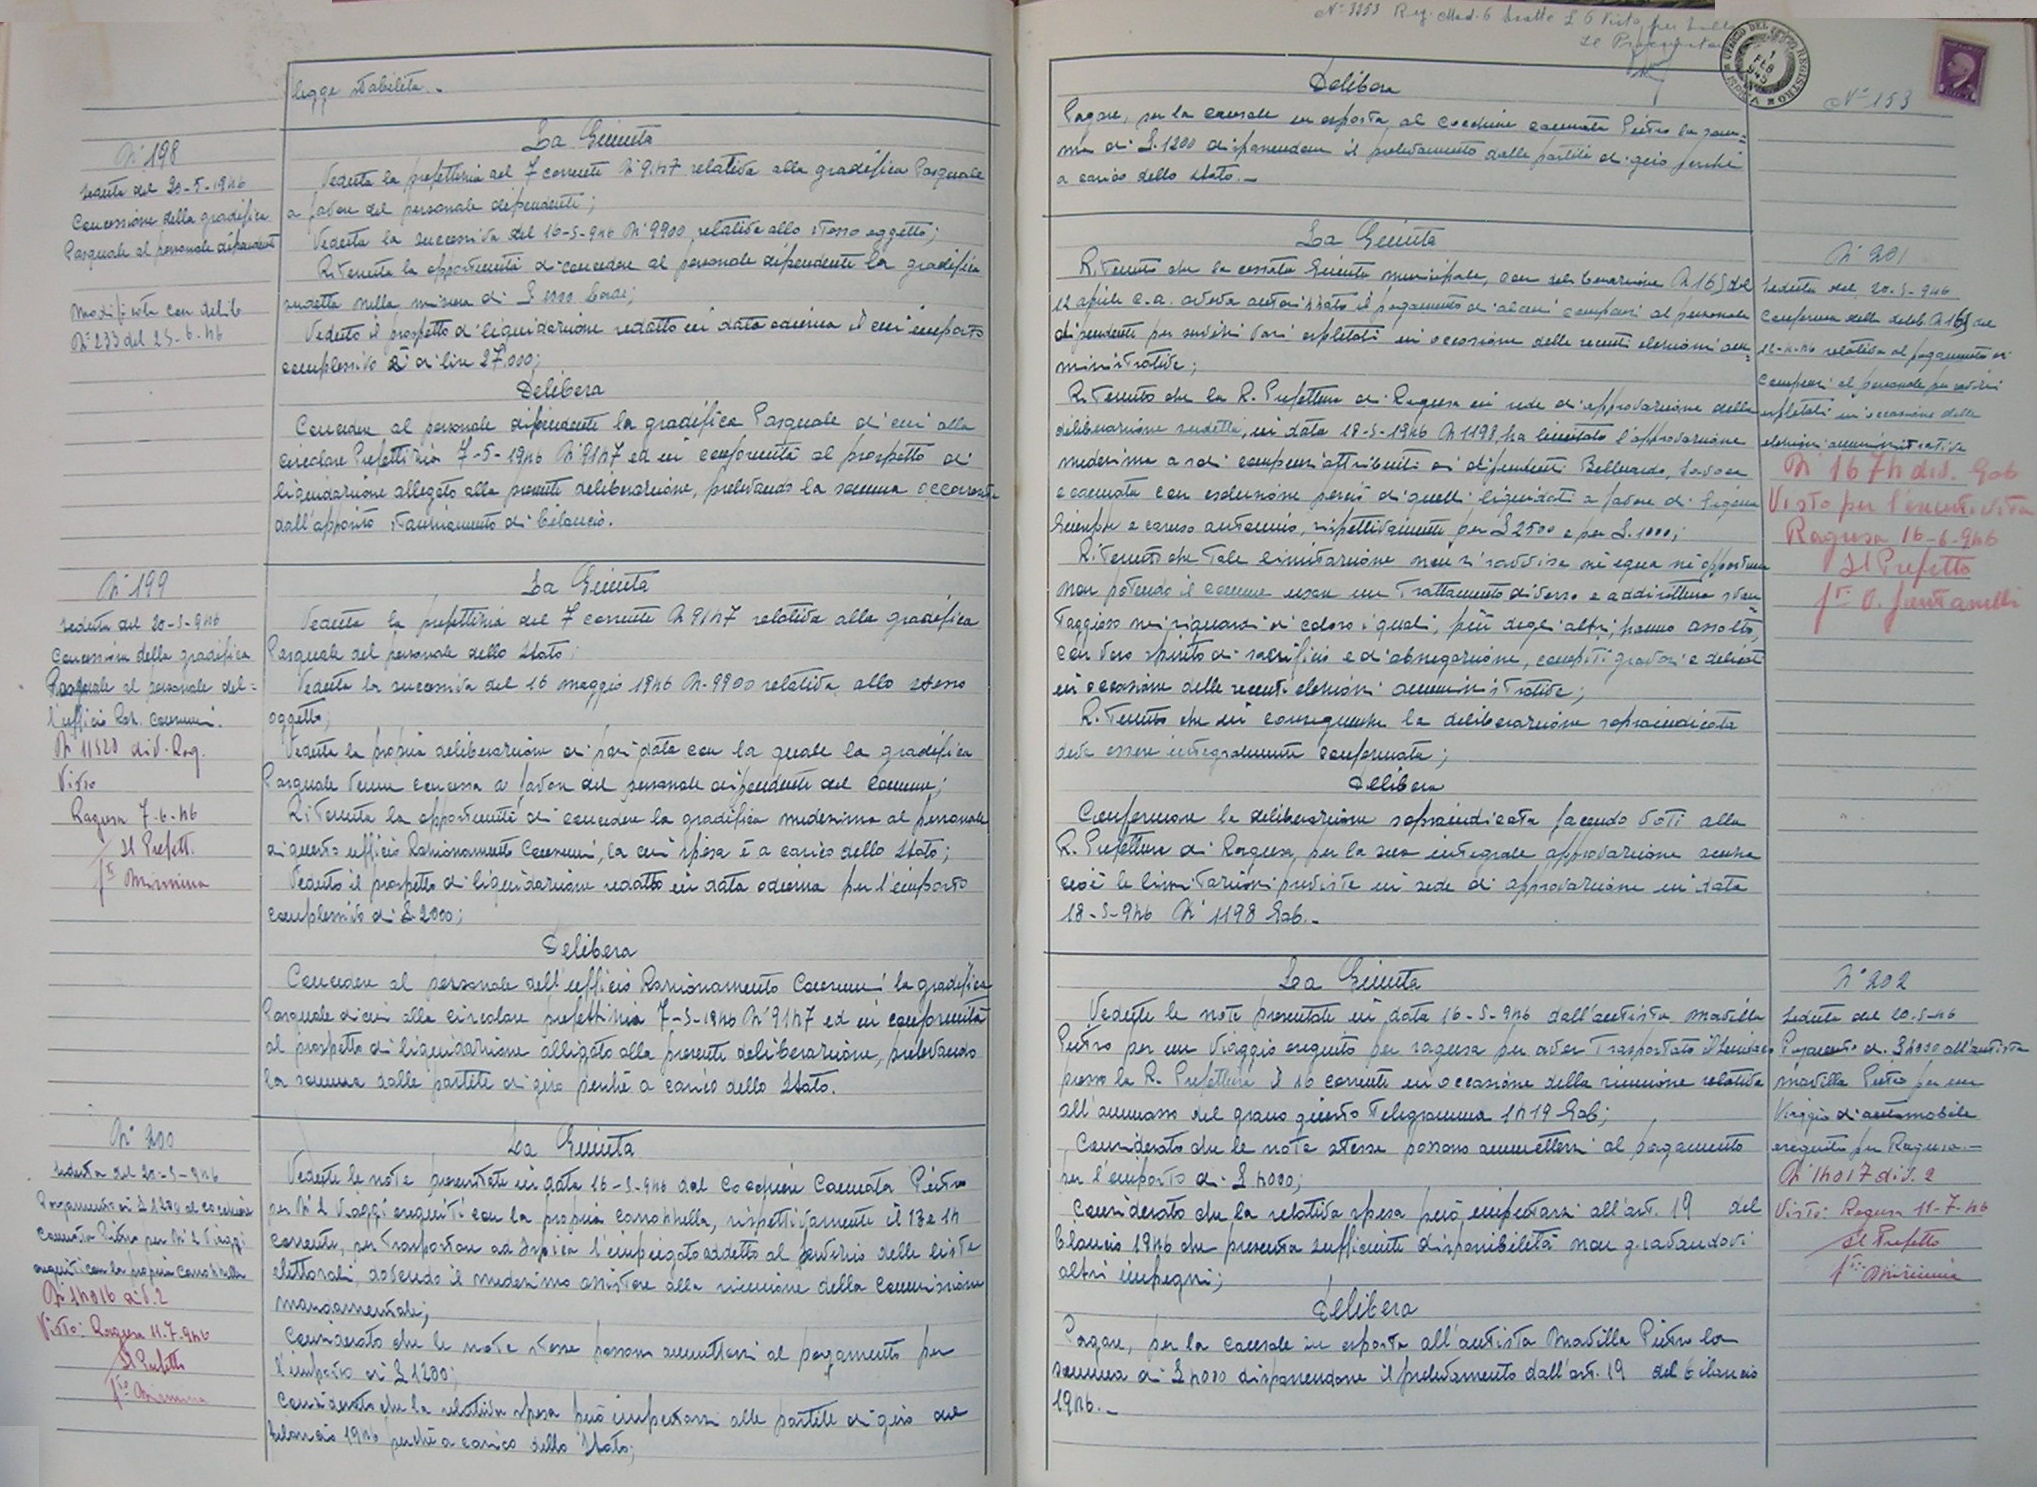 legge stabilita.-
N° 198
Seduta del 20-5-1946
Concessione della gradifica
Pasquale al personale dipendente
Modificata con delib
N° 233 del 25-6-46
La Giunta
Veduta la prefettizia del 7 corrente N° 9147 relativa alla gradifica Pasquale
a favore del personale dipendente;
Veduta la successiva del 16-5-946 N° 9900 relativa allo stesso oggetto;
Ritenuta la opportunità di concedere al personale dipendente la gradifica
sudetta nella misura di £
Veduto il prospetto di liquidazione redatto in data odierna il cui importo
complessivo è di lire 27.000;
Delibera
Concedere al personale dipendente la gradifica Pasquale di cui alla
circolare Prefettizia 7-5-1946 N° 9147 ed in conformità al prospetto di
liquidazione allegato alla presente deliberazione, prelevando la somma occorrente
dall'apposito stanziamento di bilancio.
N° 199
Seduta del 20-5-946
Concessione della gradifica
Pasquale al personale del=
l'ufficio Raz. Consumi.
N° 11528 div. Rag.
Visto
Ragusa 7-6-46
Il Prefetto
fto Messina
La Giunta
Veduta la prefettizia del 7 corrente N 9147 relativa alla gradifica
Pasquale del personale dello Stato;
Veduta la successiva del 16 maggio 1946 N. 9900 relativa allo stesso
oggetto;
Veduta la propria deliberazione di pari data con la quale la gradifica
Pasquale venne concessa a favore del personale dipendente del Comune;
Ritenuta la opportunità di concedere la gradifica medesima al personale
di questo ufficio Razionamento Consumi, la cui spesa è a carico dello Stato;
Veduto il prospetto di liquidazione redatto in data odierna per l'importo
complessivo di £ 2000;
Delibera
Concedere al personale dell'ufficio Razionamento Consumi la gradifica
Pasquale di cui alla circolare prefettizia 7-5-1946 N° 9147 ed in conformità
al prospetto di liquidazione alligato alla presente deliberazione, prelevando
la somma dalle partite di giro perchè a carico dello Stato.
N° 200
Seduta del 20-5-946
Pagamento di £ 1200 al cocchiere
Cannata Pietro per N° 2 viaggi
eseguiti con la propria carrozzella
N° 14016 div. 2
Visto: Ragusa 11-7-946
Il Prefetto
fto Messina
La Giunta
Vedute le note presentate in data 16-5-946 dal Cocchiere Cannata Pietro
per N° 2 viaggi eseguiti con la propria carrozzella, rispettivamente il 13 e 14
corrente, per trasportare ad Ispica l'impiegato addetto al servizio delle liste
elettorali, dovendo il medesimo assistere alla riunione della Commissione
mandamentale;
Considerato che le note stesse possono ammettersi al pagamento per
l'importo di £ 1200;
Considerato che la relativa spesa può imputarsi alle partite di giro del
bilancio 1946 perchè a carico dello Stato;
N° 3253 Reg. Mod. 6 £ 6 Visto per bollo
Il Procuratore
UFFICIO DEL REGISTRO
FEB 945
N° 153
Delibera
Pagare, per la causale in esposta, al cocchiere Cannata Pietro la som=
ma di £. 1200 disponendone il prelevamento dalle partite di giro perchè
a carico dello Stato.-
La Giunta
Ritenuto che la cessata Giunta municipale, con deliberazione N 165 del
12 aprile c.a. aveva autorizzato il pagamento di alcuni compensi al personale
dipendente per servizi vari espletati in occasione delle recenti elezioni am=
ministrative;
Ritenuto che la R. Prefettura di Ragusa in sede di approvazione della
deliberazione sudetta, in data 18-5-1946 N 1198, ha limitato l'approvazione
medesima a soli compensi attribuiti ai dipendenti Belluardo,
e Cannata con esclusione perciò di quelli liquidati a favore di
Giuseppe e Caruso Antonio, rispettivamente per £ 2500 e per £. 1000;
Ritenuto che tale limitazione non si ravvisa nè equa nè opportuna
non potendo il comune usare un trattamento diverso e addirittura svan
taggioso nei riguardi di coloro i quali, più degli altri, hanno assolto,
con vero spirito di sacrificio e di abnegazione, compiti gravosi e delicati
in occasione delle recenti elezioni amministrative;
Ritenuto che in conseguenza la deliberazione sopraindicata
deve essere integralmente confermata;
Delibera
Confermare la deliberazione sopraindicata facendo voti alla
R. Prefettura di Ragusa, per la sua integrale approvazione senza
cioè le limitazioni previste in sede di approvazione in data
18-5-946 N° 1198 Gab.-
N° 201
Seduta del 20-5-946
Conferma della delib. N 165 del
12-4-46 relativa al pagamento di
compensi al personale per servizi
espletati in occasione delle
elezioni amministrative
N 1674 div. Gab
Visto per l'esecutività
Ragusa 16-6-946
Il Prefetto
fto
La Giunta
Vedute le note presentate in data 16-5-946 dall'autista Mavilla
Pietro per un viaggio eseguito per Ragusa per aver trasportato il Sindaco
presso la R. Prefettura il 16 corrente in occasione della riunione relativa
all'ammasso del grano giusto telegramma 1419 Gab;
Considerato che le note stesse possono ammettersi al pagamento
per l'importo di £ 4000;
Considerato che la relativa spesa può imputarsi all'art. 19 del
bilancio 1946 che presenta sufficiente disponibilità non gravandovi
altri impegni;
Delibera
Pagare, per la causale in esposta all'autista Mavilla Pietro la
somma di £ 4000 disponendone il prelevamento dall'art. 19 del bilancio
1946.-
N° 202
Seduta del 20-5-46
Pagamento di £ 4000 all'autista
Mavilla Pietro per un
viaggio di automobile
eseguito per Ragusa.=
N° 14017 div. 2
Visto: Ragusa 11-7-46
Il Prefetto
fto Messina